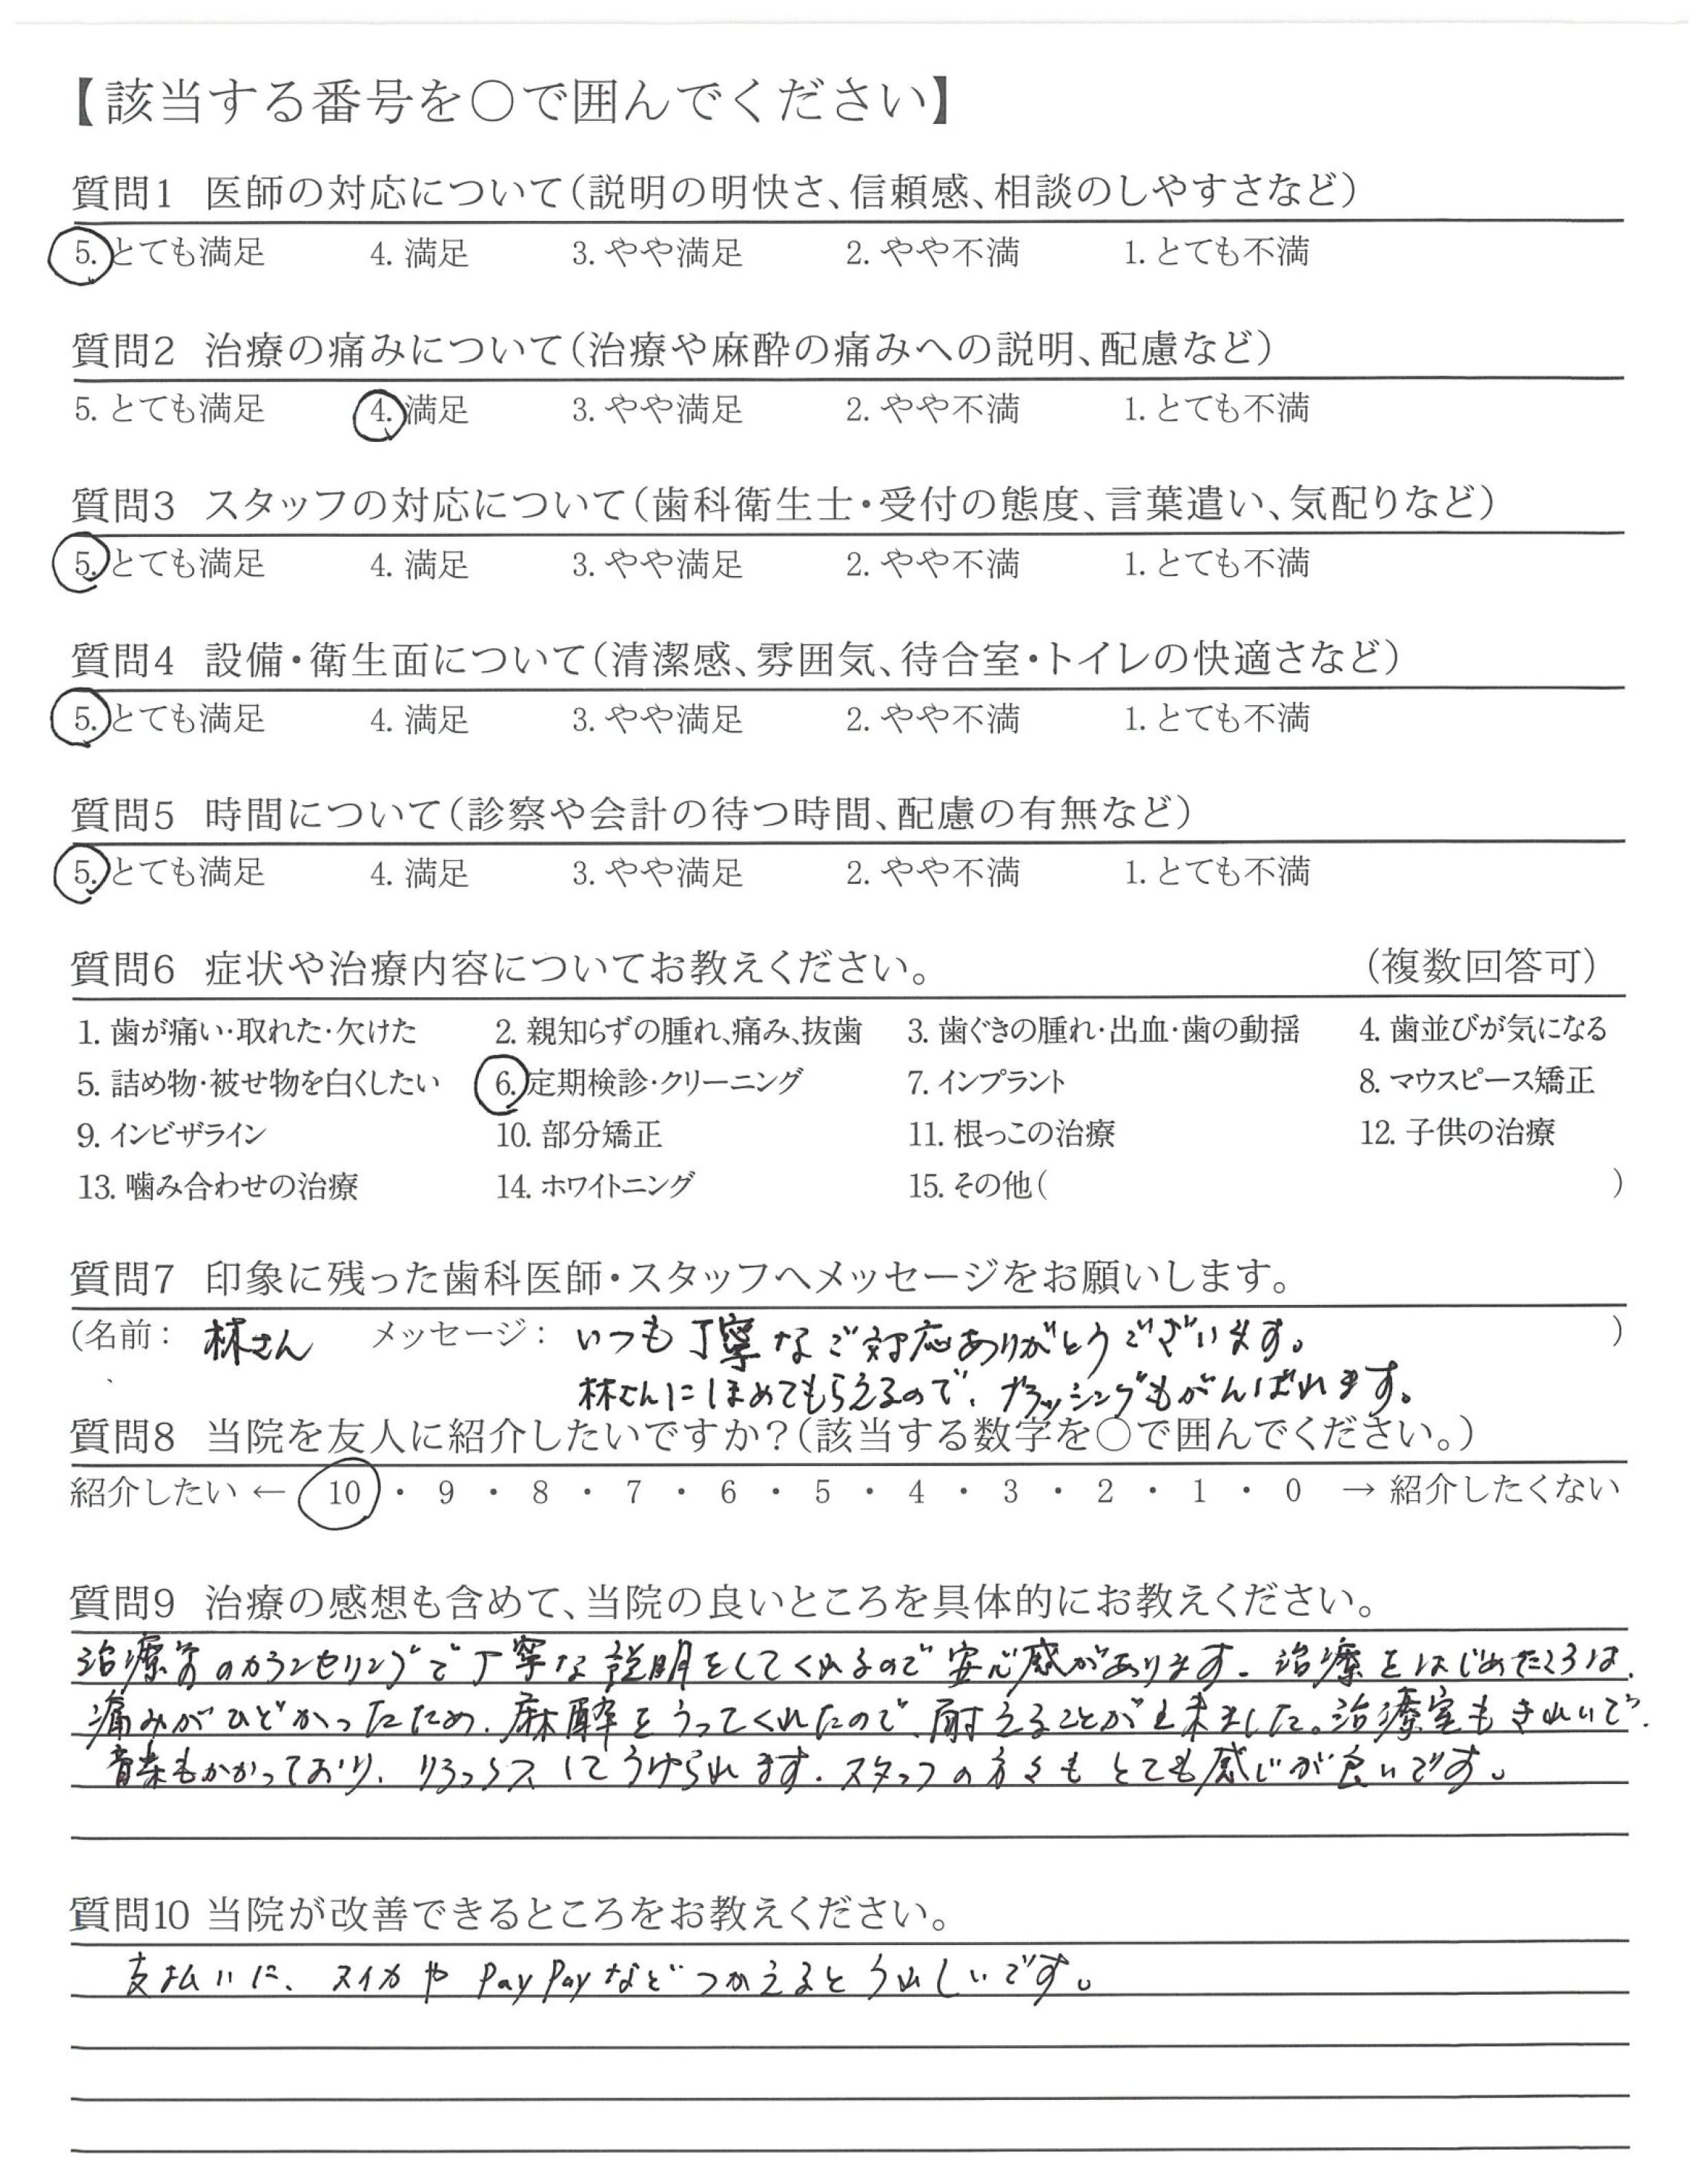 【該当する番号を〇で囲んでください】
質問1 医師の対応について(説明の明快さ、信頼感、相談のしやすさなど)
5. とても満足 4. 満足 3. やや満足 2. やや不満 1. とても不満
質問2 治療の痛みについて(治療や麻酔の痛みへの説明、配慮など)
5. とても満足 4. 満足 3. やや満足 2. やや不満 1. とても不満
質問3 スタッフの対応について(歯科衛生士・受付の態度、言葉遣い、気配りなど)
5. とても満足 4. 満足 3. やや満足 2. やや不満 1. とても不満
質問4 設備・衛生面について(清潔感、雰囲気、待合室・トイレの快適さなど)
5. とても満足 4. 満足 3. やや満足 2. やや不満 1. とても不満
質問5 時間について(診察や会計の待つ時間、配慮の有無など)
5. とても満足 4. 満足 3. やや満足 2. やや不満 1. とても不満
質問6 症状や治療内容についてお教えください。 (複数回答可)
1. 歯が痛い・取れた・欠けた 2. 親知らずの腫れ、痛み、抜歯 3. 歯ぐきの腫れ・出血・歯の動揺 4. 歯並びが気になる
5. 詰め物・被せ物を白くしたい 6. 定期検診・クリーニング 7. インプラント 8. マウスピース矯正
9. インビザライン 10. 部分矯正 11. 根っこの治療 12. 子供の治療
13. 噛み合わせの治療 14. ホワイトニング 15. その他( )
質問7 印象に残った歯科医師・スタッフへメッセージをお願いします。
(名前: 林さん メッセージ: いつも丁寧なご対応ありがとうございます。 )
林さんにほめてもらえるので、ブラッシングもがんばれます。
質問8 当院を友人に紹介したいですか?(該当する数字を〇で囲んでください。)
紹介したい ← 10 ・ 9 ・ 8 ・ 7 ・ 6 ・ 5 ・ 4 ・ 3 ・ 2 ・ 1 ・ 0 → 紹介したくない
質問9 治療の感想も含めて、当院の良いところを具体的にお教えください。
治療前のカウンセリングで丁寧な説明をしてくれるので安心感があります。治療をはじめたころは、
痛みがひどかったため、麻酔をうってくれたので、耐えることが出来ました。治療室もきれいで、
音楽もかかっており、リラックスしてうけられます。スタッフの方々もとても感じが良いです。
質問10 当院が改善できるところをお教えください。
支払いに、スイカやPayPayなどつかえるとうれしいです。